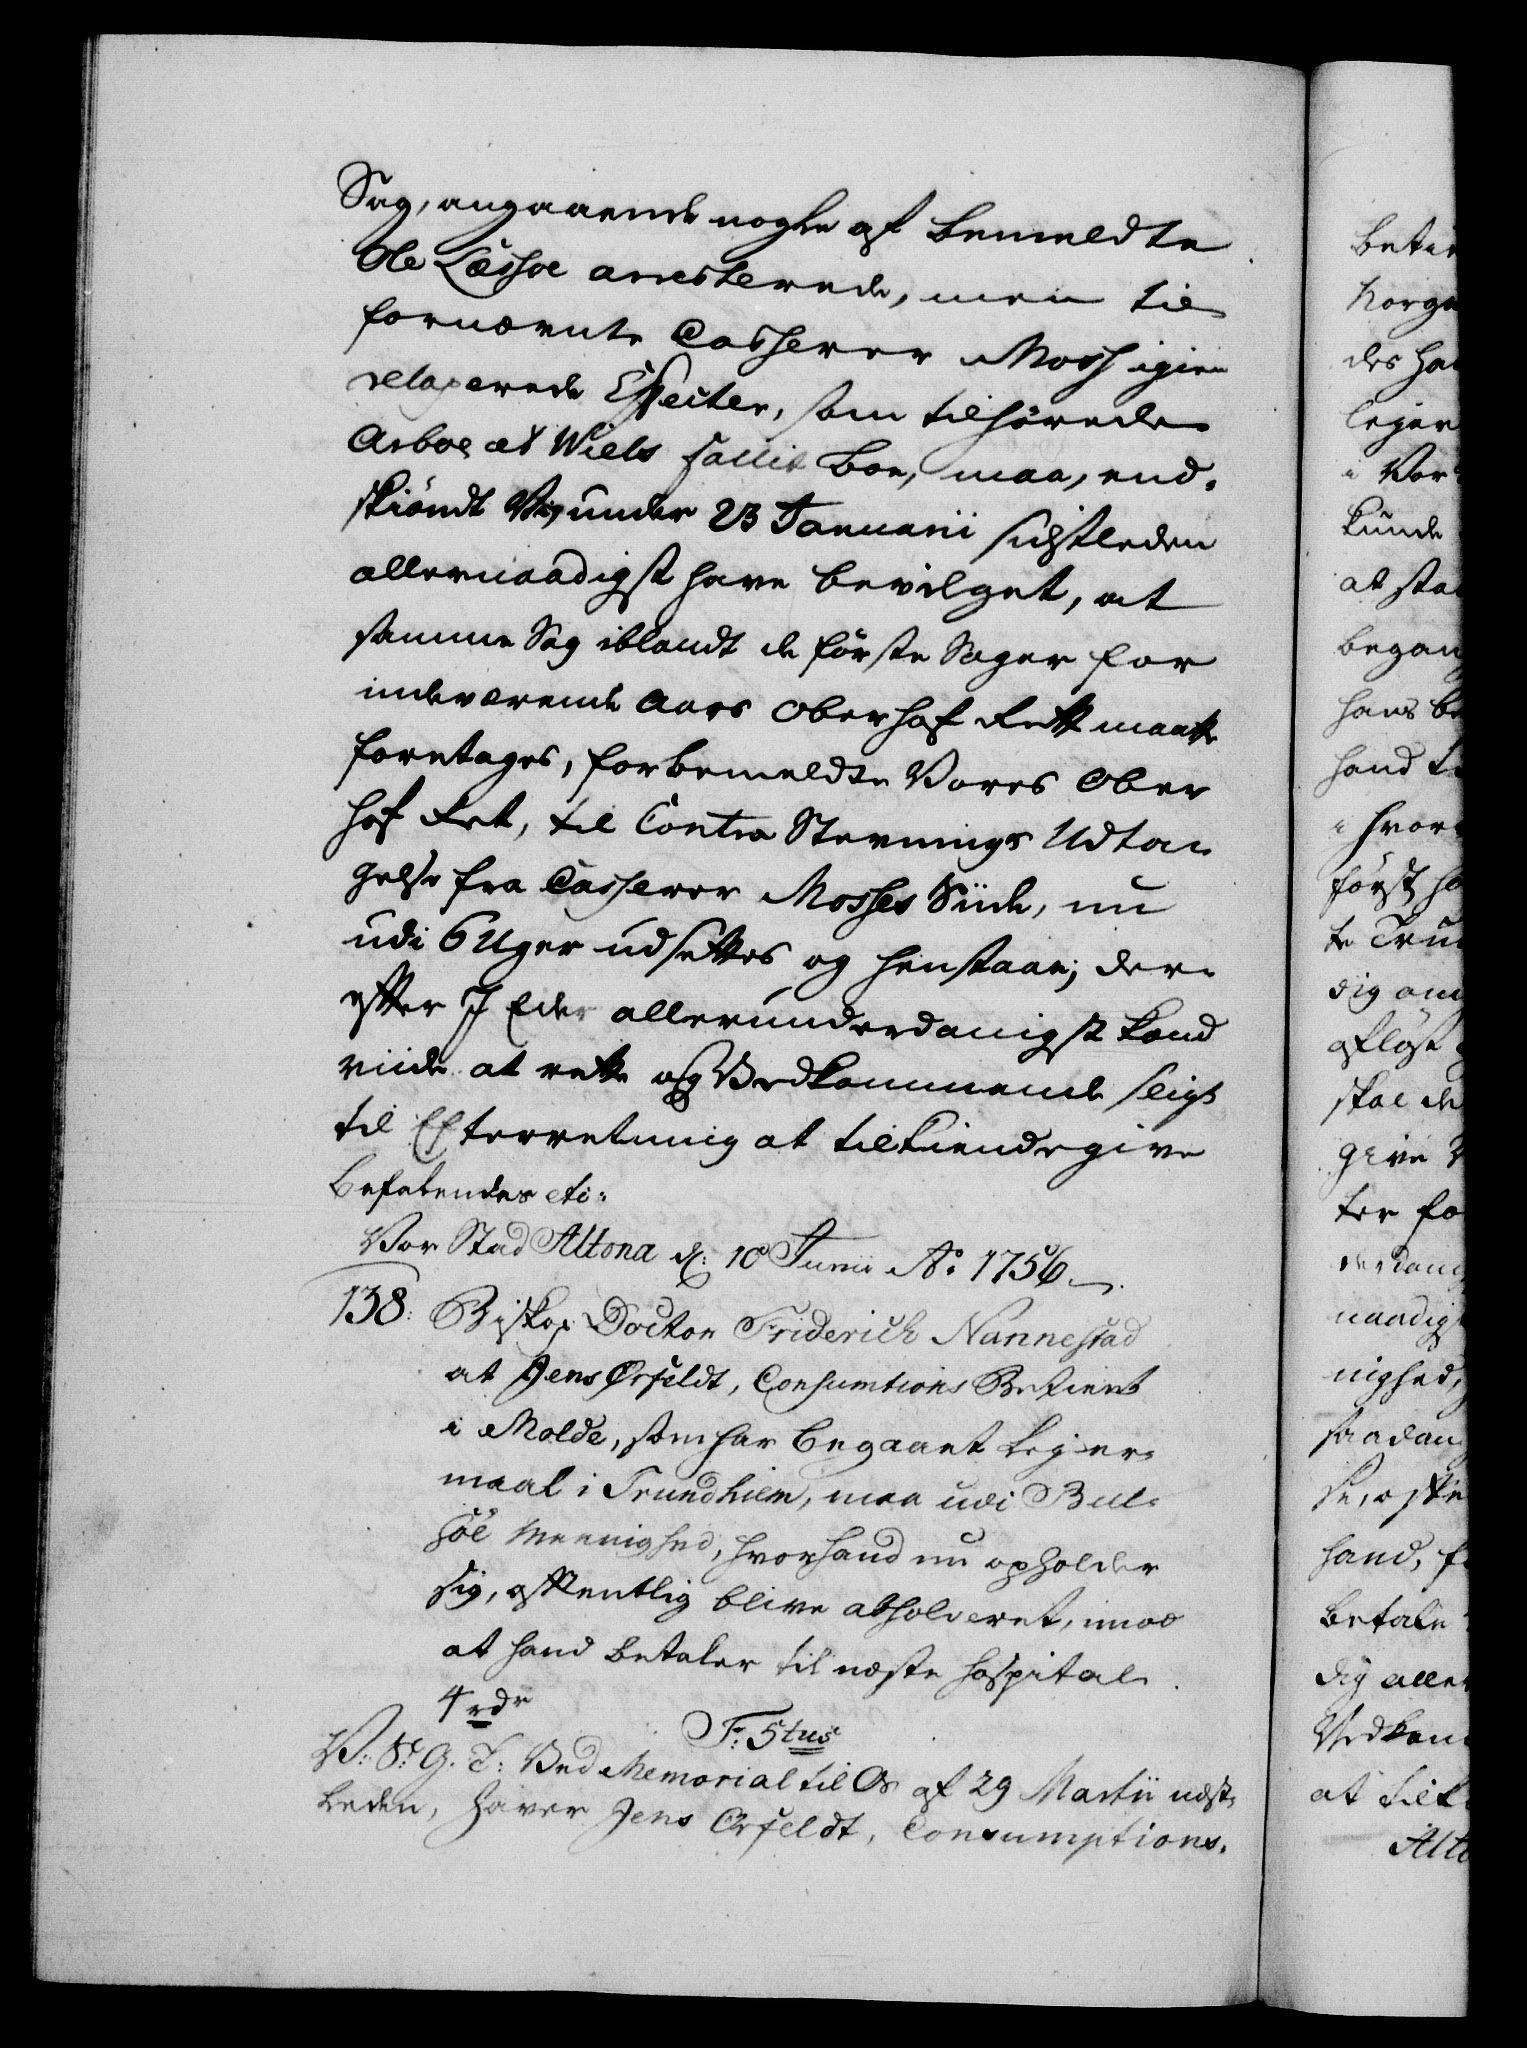 Sag, angaaende nogle af bemeldte
Ole Læssoe arresterede, men til
fornævnte Casserer Mosh igien
relaxerede Effecter, som tilhörede
Arboe et Wiels fallit Boe, maa, end¬
skiöndt Vi, under 23 Januarii sidstleden
allernaadigst have bevilget, at
samme Sag iblandt de förste Sager for
indeværende Aars Oberhof Rett maatte
foretages, for bemeldte Vores Ober
Hof Ret, til Contra Stevnings Udta¬
gelse fra Casserer Mosses Siide, nu
udi 6 Uger udsettes og henstaae; der¬
efter I Eder allerunderdanigst kand
viide at rette og Vedkommende sligt
til Efterretning at tilkiendegive
Befalendes etc:
Vor Stad Altona d: 10 Junii Ao 1756.
138: Biskop Doctor Friderich Nannestad
at Jens Örfeldt, Consumtions Betient
i Molde, som har begaaet Leyer¬
maal i Trundhiem, maa udi Bul¬
söe Meenighed, hvor hand nu opholder
sig, offentlig blive absolveret, imod
at hand betaler til næste Hospital
4 rdr
F. 5tus
V: St G. T: Ved Memorial til Os af 29 Martii næst¬
leden, haver Jens Örfeldt, Consumptions¬
betie
Norge
des ha
leyer
i Vor
kunde
at sta
began
hans be
hand
i hvor
först ha
te Tru
dig an
aflöst
skal de
give V
ter fo
derdanig
naadigs
nighed,
saadan
hand, f
betale
dig aller
Vedkom
at tilk
Alto